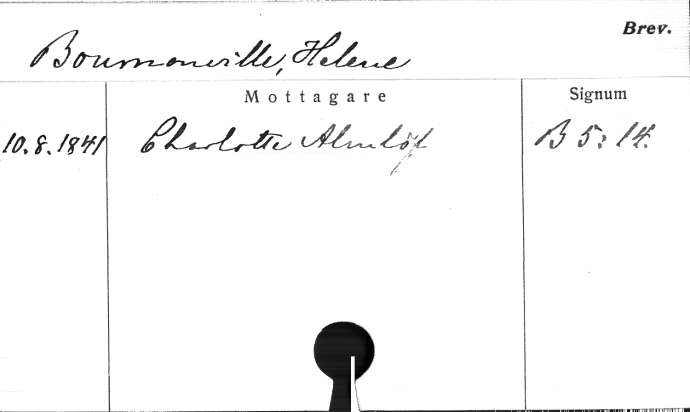 Brev.
Bournonville, Helene
Mottagare
Signum
10.8.1841 Charlotte Almlöf B 5: 14.